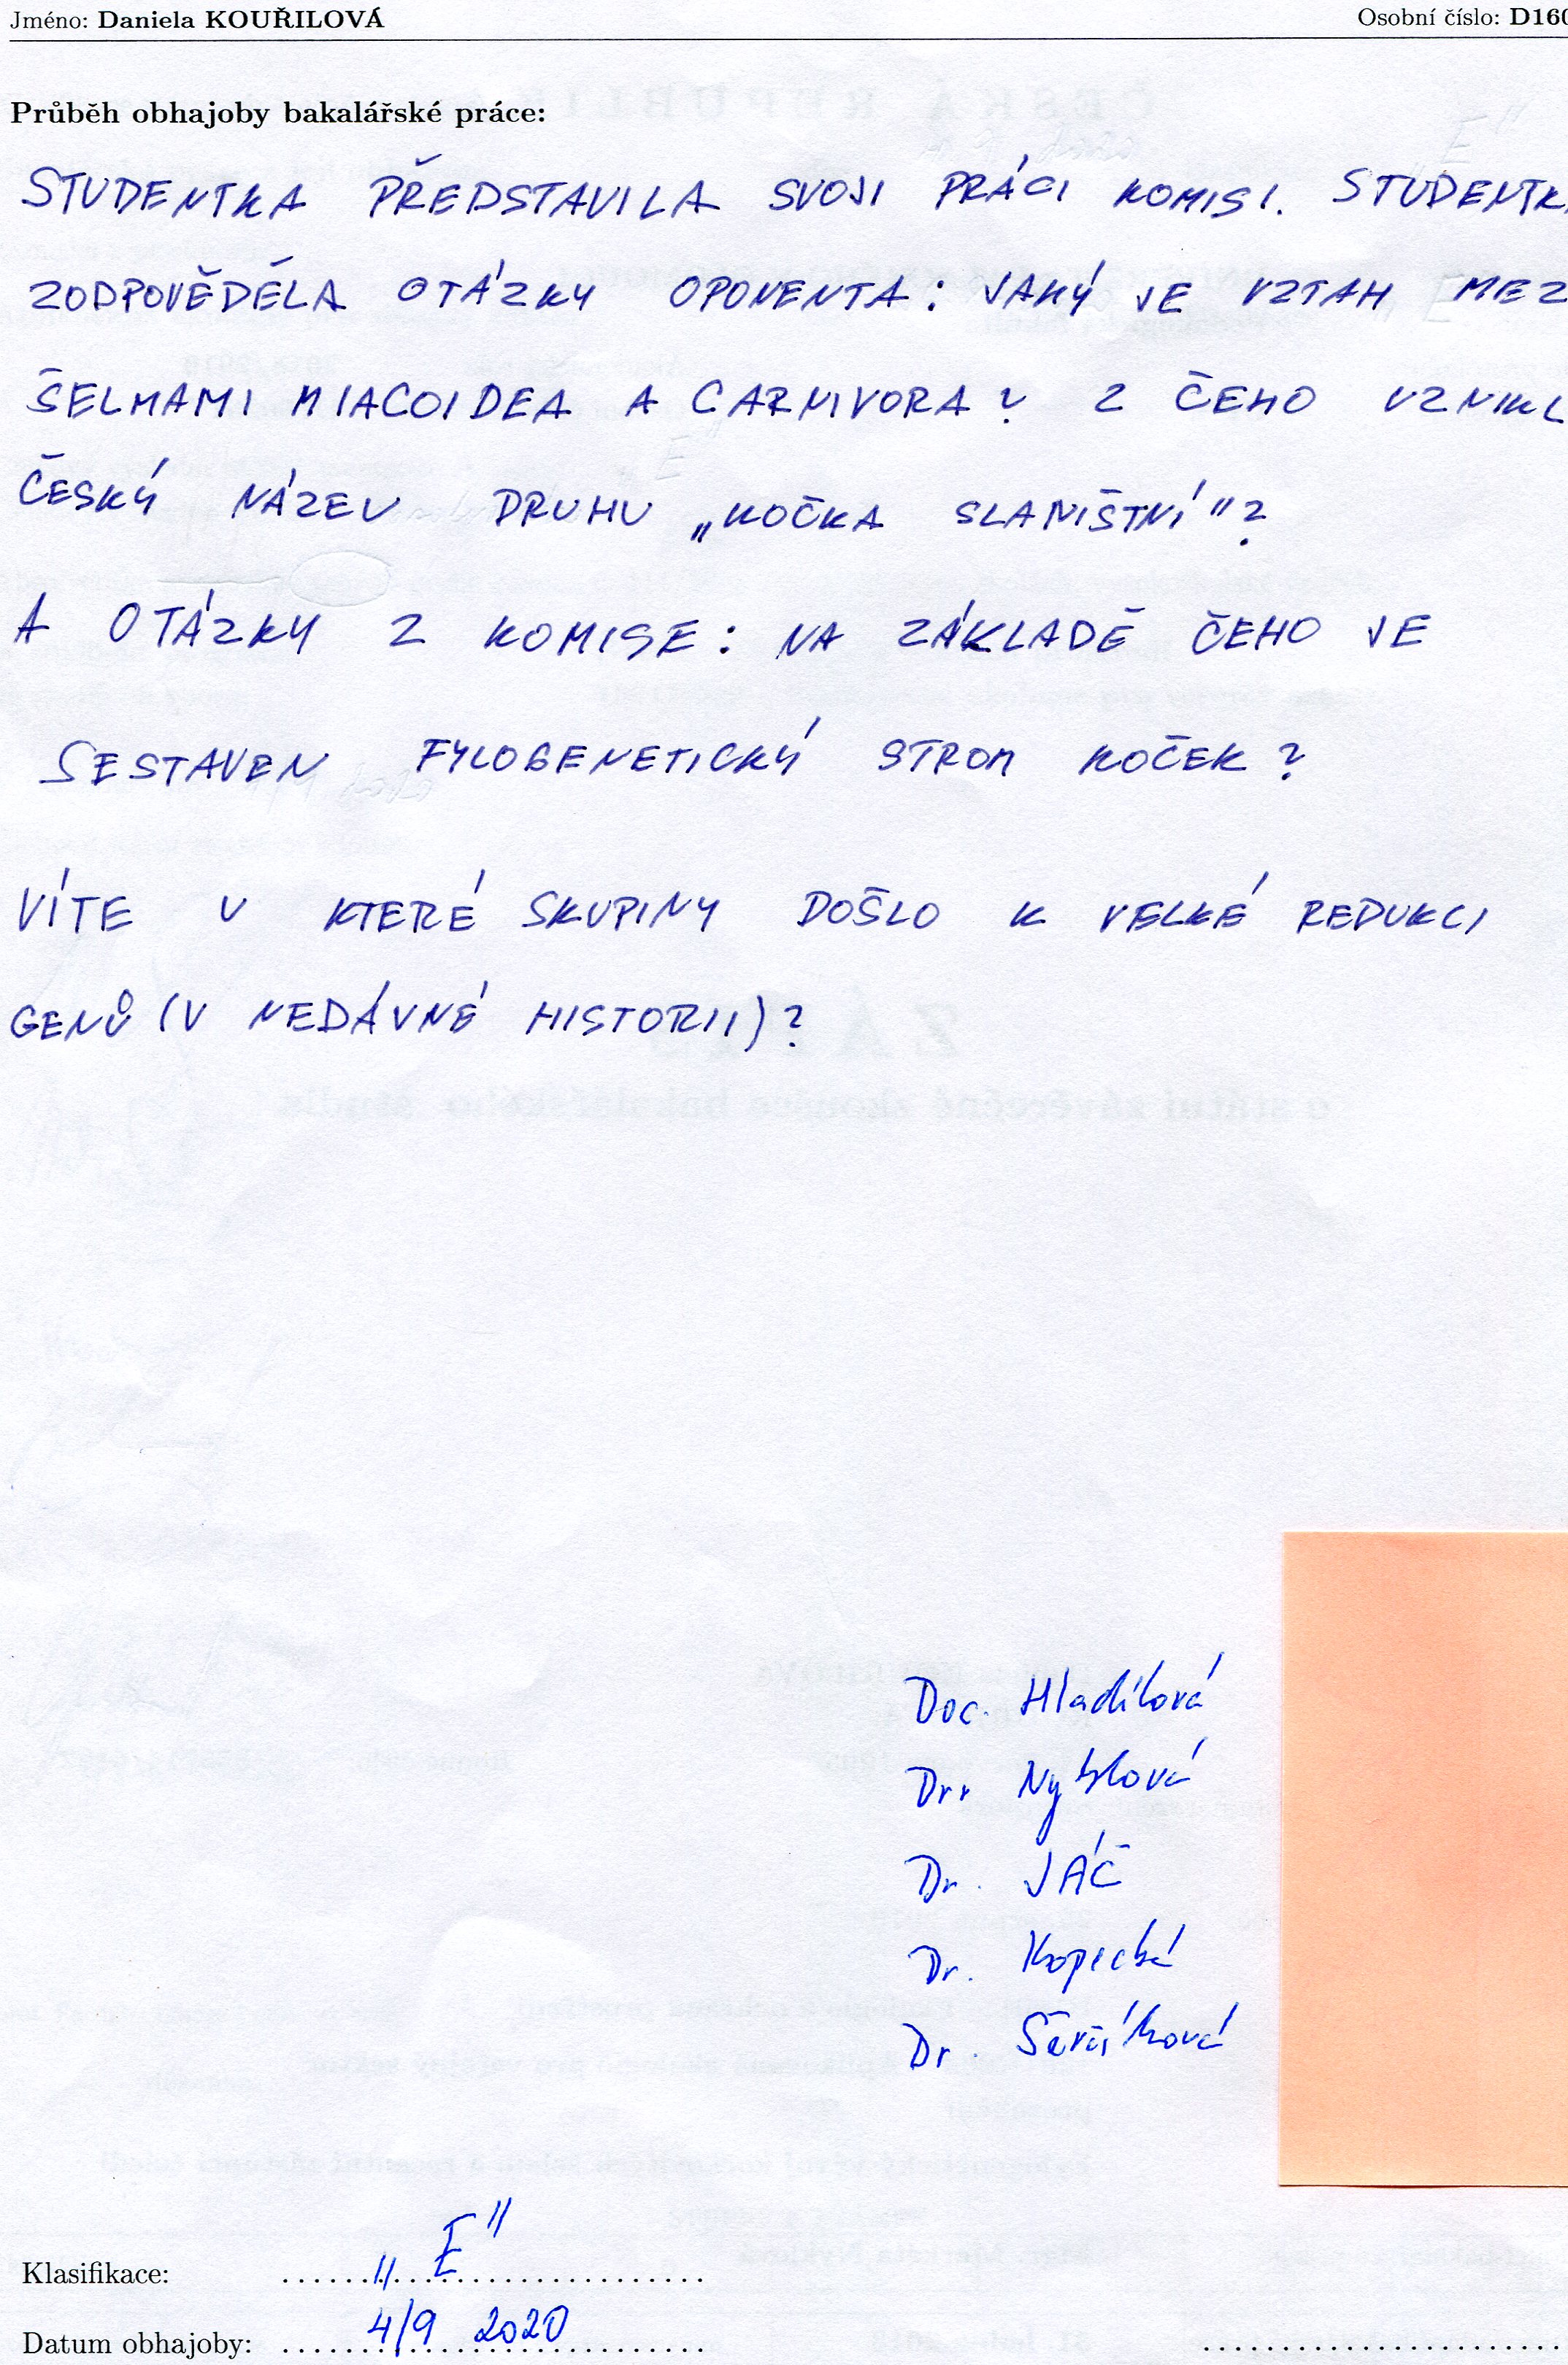 Jméno: Daniela KOUŘILOVÁ Osobní číslo: D160
Průběh obhajoby bakalářské práce:
STUDENTKA PŘEDSTAVILA SVOJI PRÁCI KOMISI. STUDENTK
ZODPOVĚDĚLA OTÁZKY OPONENTA: JAKÝ JE VZTAH MEZ
ŠELMAMI MIACOIDEA A CARNIVORA? Z ČEHO VZNIKL
ČESKÝ NÁZEV DRUHU „KOČKA SLANIŠTNÍ"?
A OTÁZKY Z KOMISE: NA ZÁKLADĚ ČEHO JE
SESTAVEN FYLOGENETICKÝ STROM KOČEK?
VÍTE U KTERÉ SKUPINY DOŠLO K VELKÉ REDUKCI
GENŮ (V NEDÁVNÉ HISTORII)?
Doc. Hladilová
Dr. Nyklová
Dr. JÁČ
Dr. Kopecká
Dr. Ševčíková
Klasifikace: „E"
Datum obhajoby: 4/9 2020